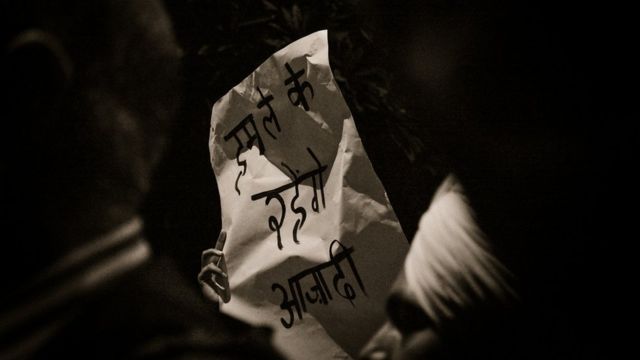 हम ले के
रहेंगे
आज़ादी